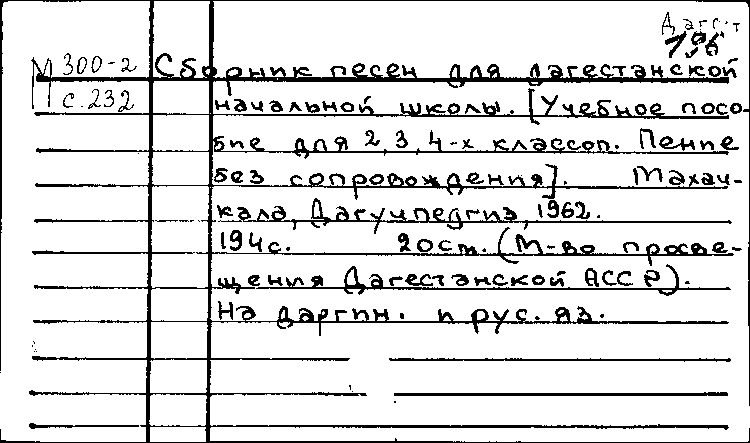 Дагс.т
196
М 300-2
с.232
Сборник песен для дагестанской
начальной школы. [Учебное посо-
бие для 2, 3, 4-х классов. Пение
без сопровождения]. Махач-
кала, Дагучпедгиз, 1962.
194с. 20 см. (М-во просве-
щения Дагестанской АССР).
На даргин. и рус. яз.